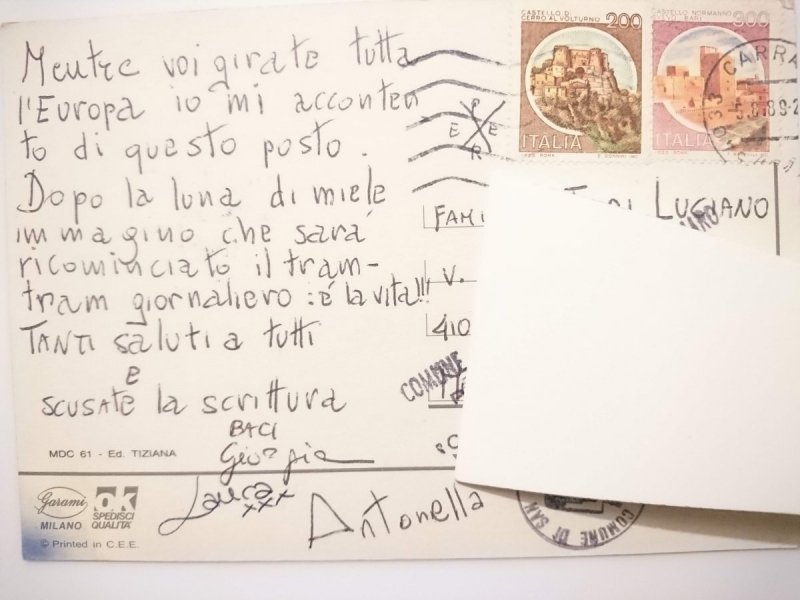 Mentre voi girate tutta
l'Europa io mi acconten
to di questo posto.
Dopo la luna di miele
immagino che sará
ricominciato il tram-
tram giornaliero: é la vita!!!
TANTI saluti a tutti
E
SCUSATE la scrittura
BACI
Giorgia
Laura xxx
Antonella
MDC 61 - Ed. TIZIANA
Garami
MILANO
ok
SPEDISCI
QUALITÀ
© Printed in C.E.E.
PER E
CASTELLO DI
CERRO AL VOLTURNO
200
ITALIA
CASTELLO NORMANNO
SVEVO, BARI
300
ITALIA
CARRA
LUCIANO
FAMI
V.
410
COMUNE
COMUNE DI SAN